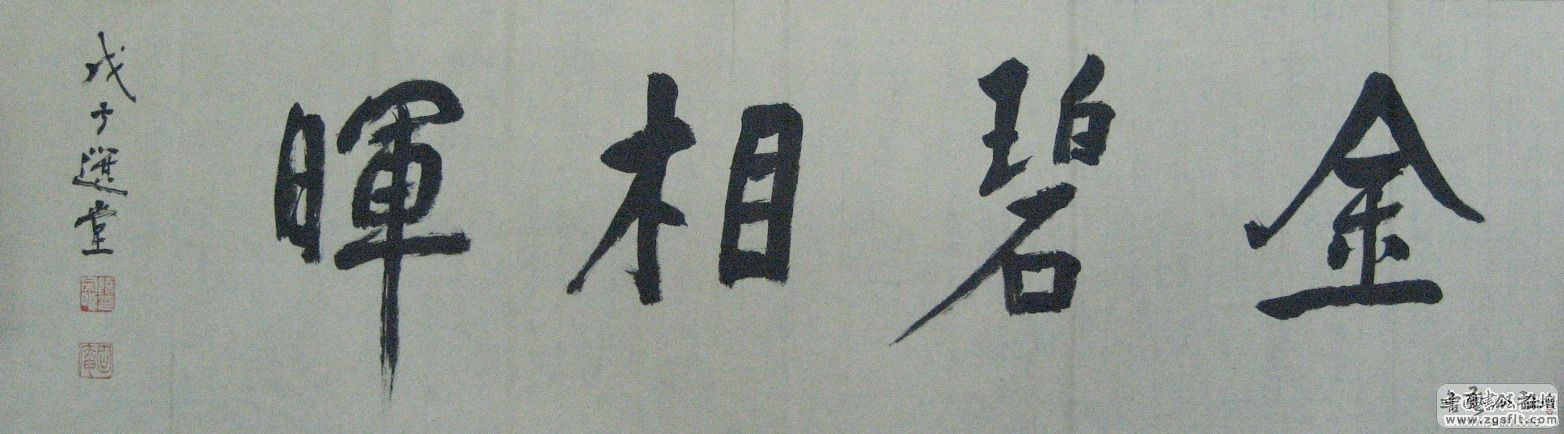 金碧相暉
戊子選堂
www.zgsflt.com